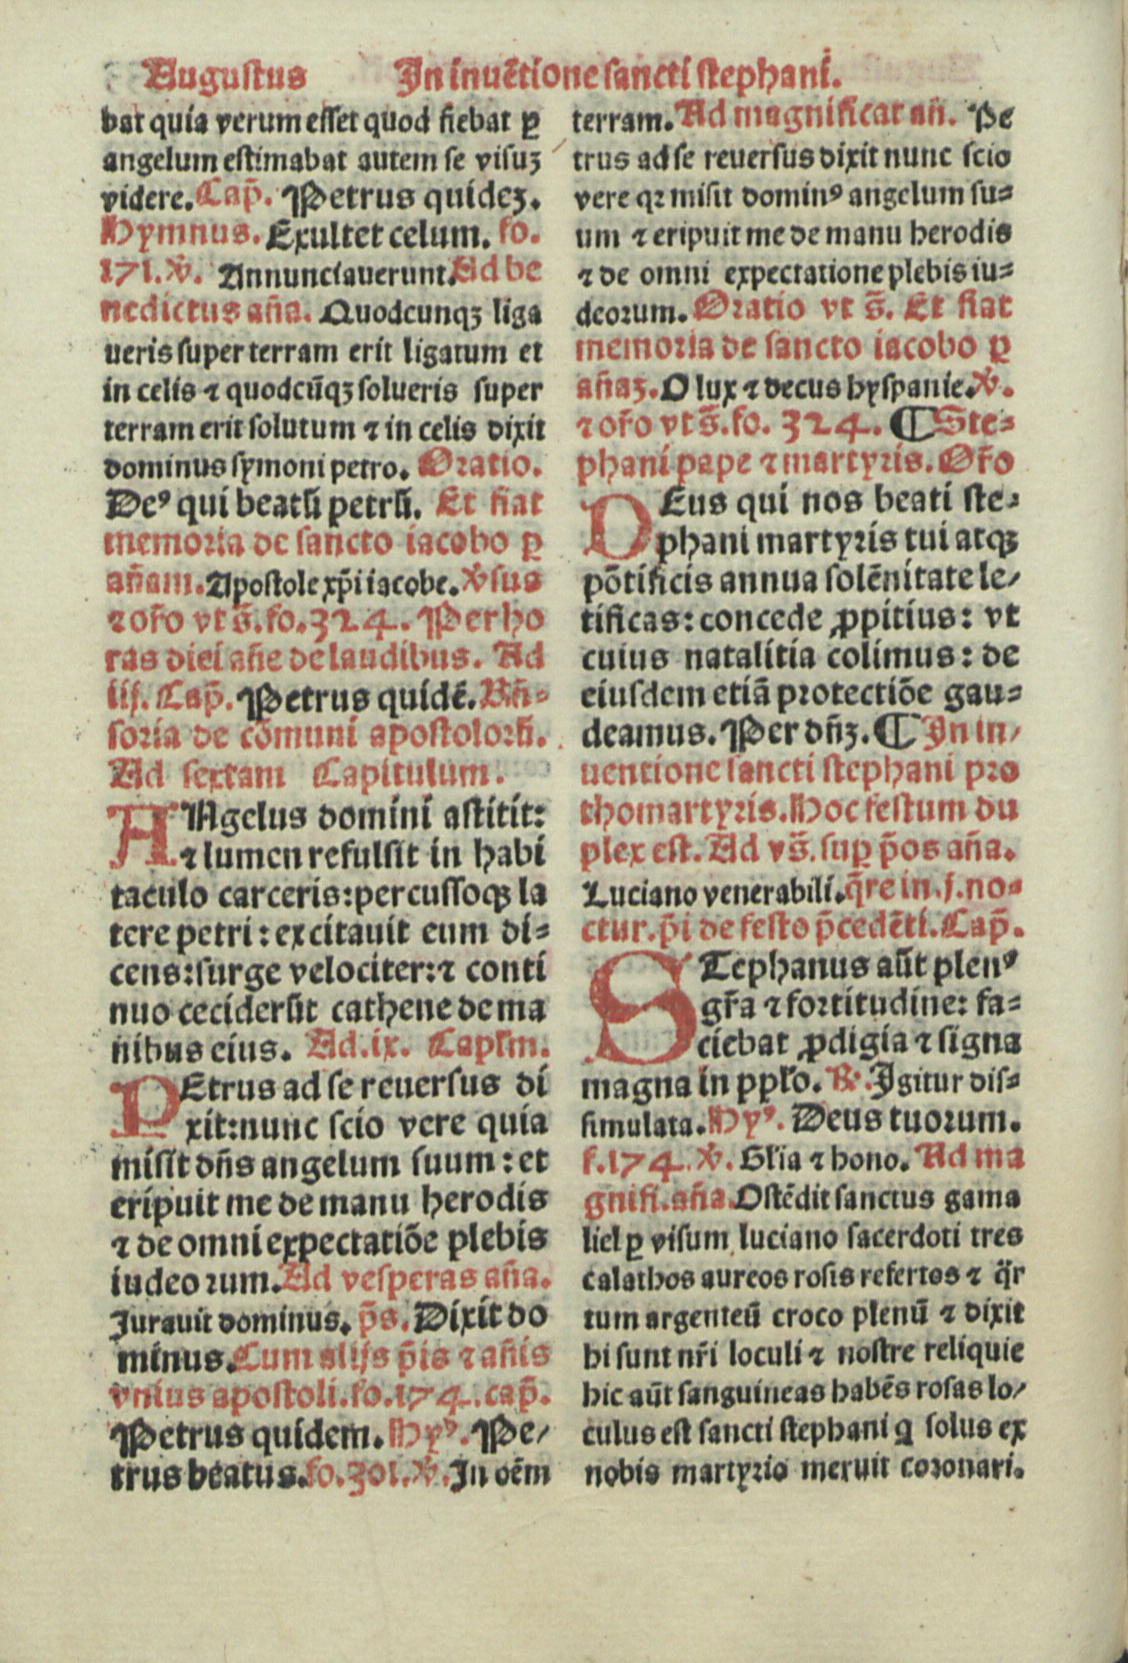 Augustus In inuẽtione sancti stephani.
bat quia verum esset quod fiebat ꝑ
angelum estimabat autem se visuꝫ
videre. Cap̃. Petrus quideꝫ.
Hymnus. Exultet celum. fo.
171. ℣. Annunciauerunt. Ad be
nedictus aña. Quodcunqꝫ liga
ueris super terram erit ligatum et
in celis ⁊ quodcũqꝫ solueris super
terram erit solutum ⁊ in celis dixit
dominus symoni petro. Oratio.
Deꝰ qui beatũ petrũ. Et fiat
memoria de sancto iacobo ꝑ
añam. Apostole xp̃i iacobe. ℣sus
⁊ or̃o vt s̃. fo. 324. Per ho
ras diei añe de laudibus. Ad
iij. Cap̃. Petrus quidẽ. Rñ-
soria de cõmuni apostolorũ.
Ad sextam Capitulum.
ANgelus domini astitit:
⁊ lumen refulsit in habi
taculo carceris: percussoqꝫ la
tere petri: excitauit eum di-
cens: surge velociter: ⁊ conti
nuo ceciderũt cathene de ma
nibus eius. Ad .ix. Caplm̃.
PEtrus ad se reuersus di
xit: nunc scio vere quia
misit dñs angelum suum: et
eripuit me de manu herodis
⁊ de omni expectatiõe plebis
iudeorum. Ad vesperas aña.
Jurauit dominus. p̃s. Dixit do
minus. Cum alijs p̃is ⁊ añis
vnius apostoli. fo. 174. cap̃.
Petrus quidem. Hyꝰ. Pe/
trus beatus. fo. 301. ℣. In oẽm
terram. Ad magnificat añ. Pe
trus ad se reuersus dixit nunc scio
vere qꝛ misit dominꝰ angelum su-
um ⁊ eripuit me de manu herodis
⁊ de omni expectatione plebis iu-
deorum. Oratio vt s̃. Et fiat
memoria de sancto iacobo ꝑ
añaꝫ. O lux ⁊ decus hyspanie. ℣.
⁊ or̃o vt s̃. fo. 324. ¶ Ste-
phani pape ⁊ martyris. Or̃o
DEus qui nos beati ste-
phani martyris tui atqꝫ
põtificis annua solẽnitate le/
tificas: concede ꝓpitius: vt
cuius natalitia colimus: de
eiusdem etiã protectiõe gau-
deamus. Per dñꝫ. ¶ In in/
uentione sancti stephani pro
thomartyris. Hoc festum du
plex est. Ad vs̃. suꝑ p̃os aña.
Luciano venerabili. q̃re in .j. no-
ctur. p̃i de festo p̃cedẽti. Cap̃.
STephanus aũt plenꝰ
gr̃a ⁊ fortitudine: fa-
ciebat ꝓdigia ⁊ signa
magna in ppl̃o. ℟. Igitur dis-
simulata. Hyꝰ. Deus tuorum.
f. 174. ℣. Gl̃ia ⁊ hono. Ad ma
gnifi. aña. Ostẽdit sanctus gama
liel ꝑ visum luciano sacerdoti tres
calathos aureos rosis refertos ⁊ q̃r
tum argenteũ croco plenũ ⁊ dixit
hi sunt nr̃i loculi ⁊ nostre reliquie
hic aũt sanguineas habẽs rosas lo/
culus est sancti stephani q̃ solus ex
nobis martyrio meruit coronari.